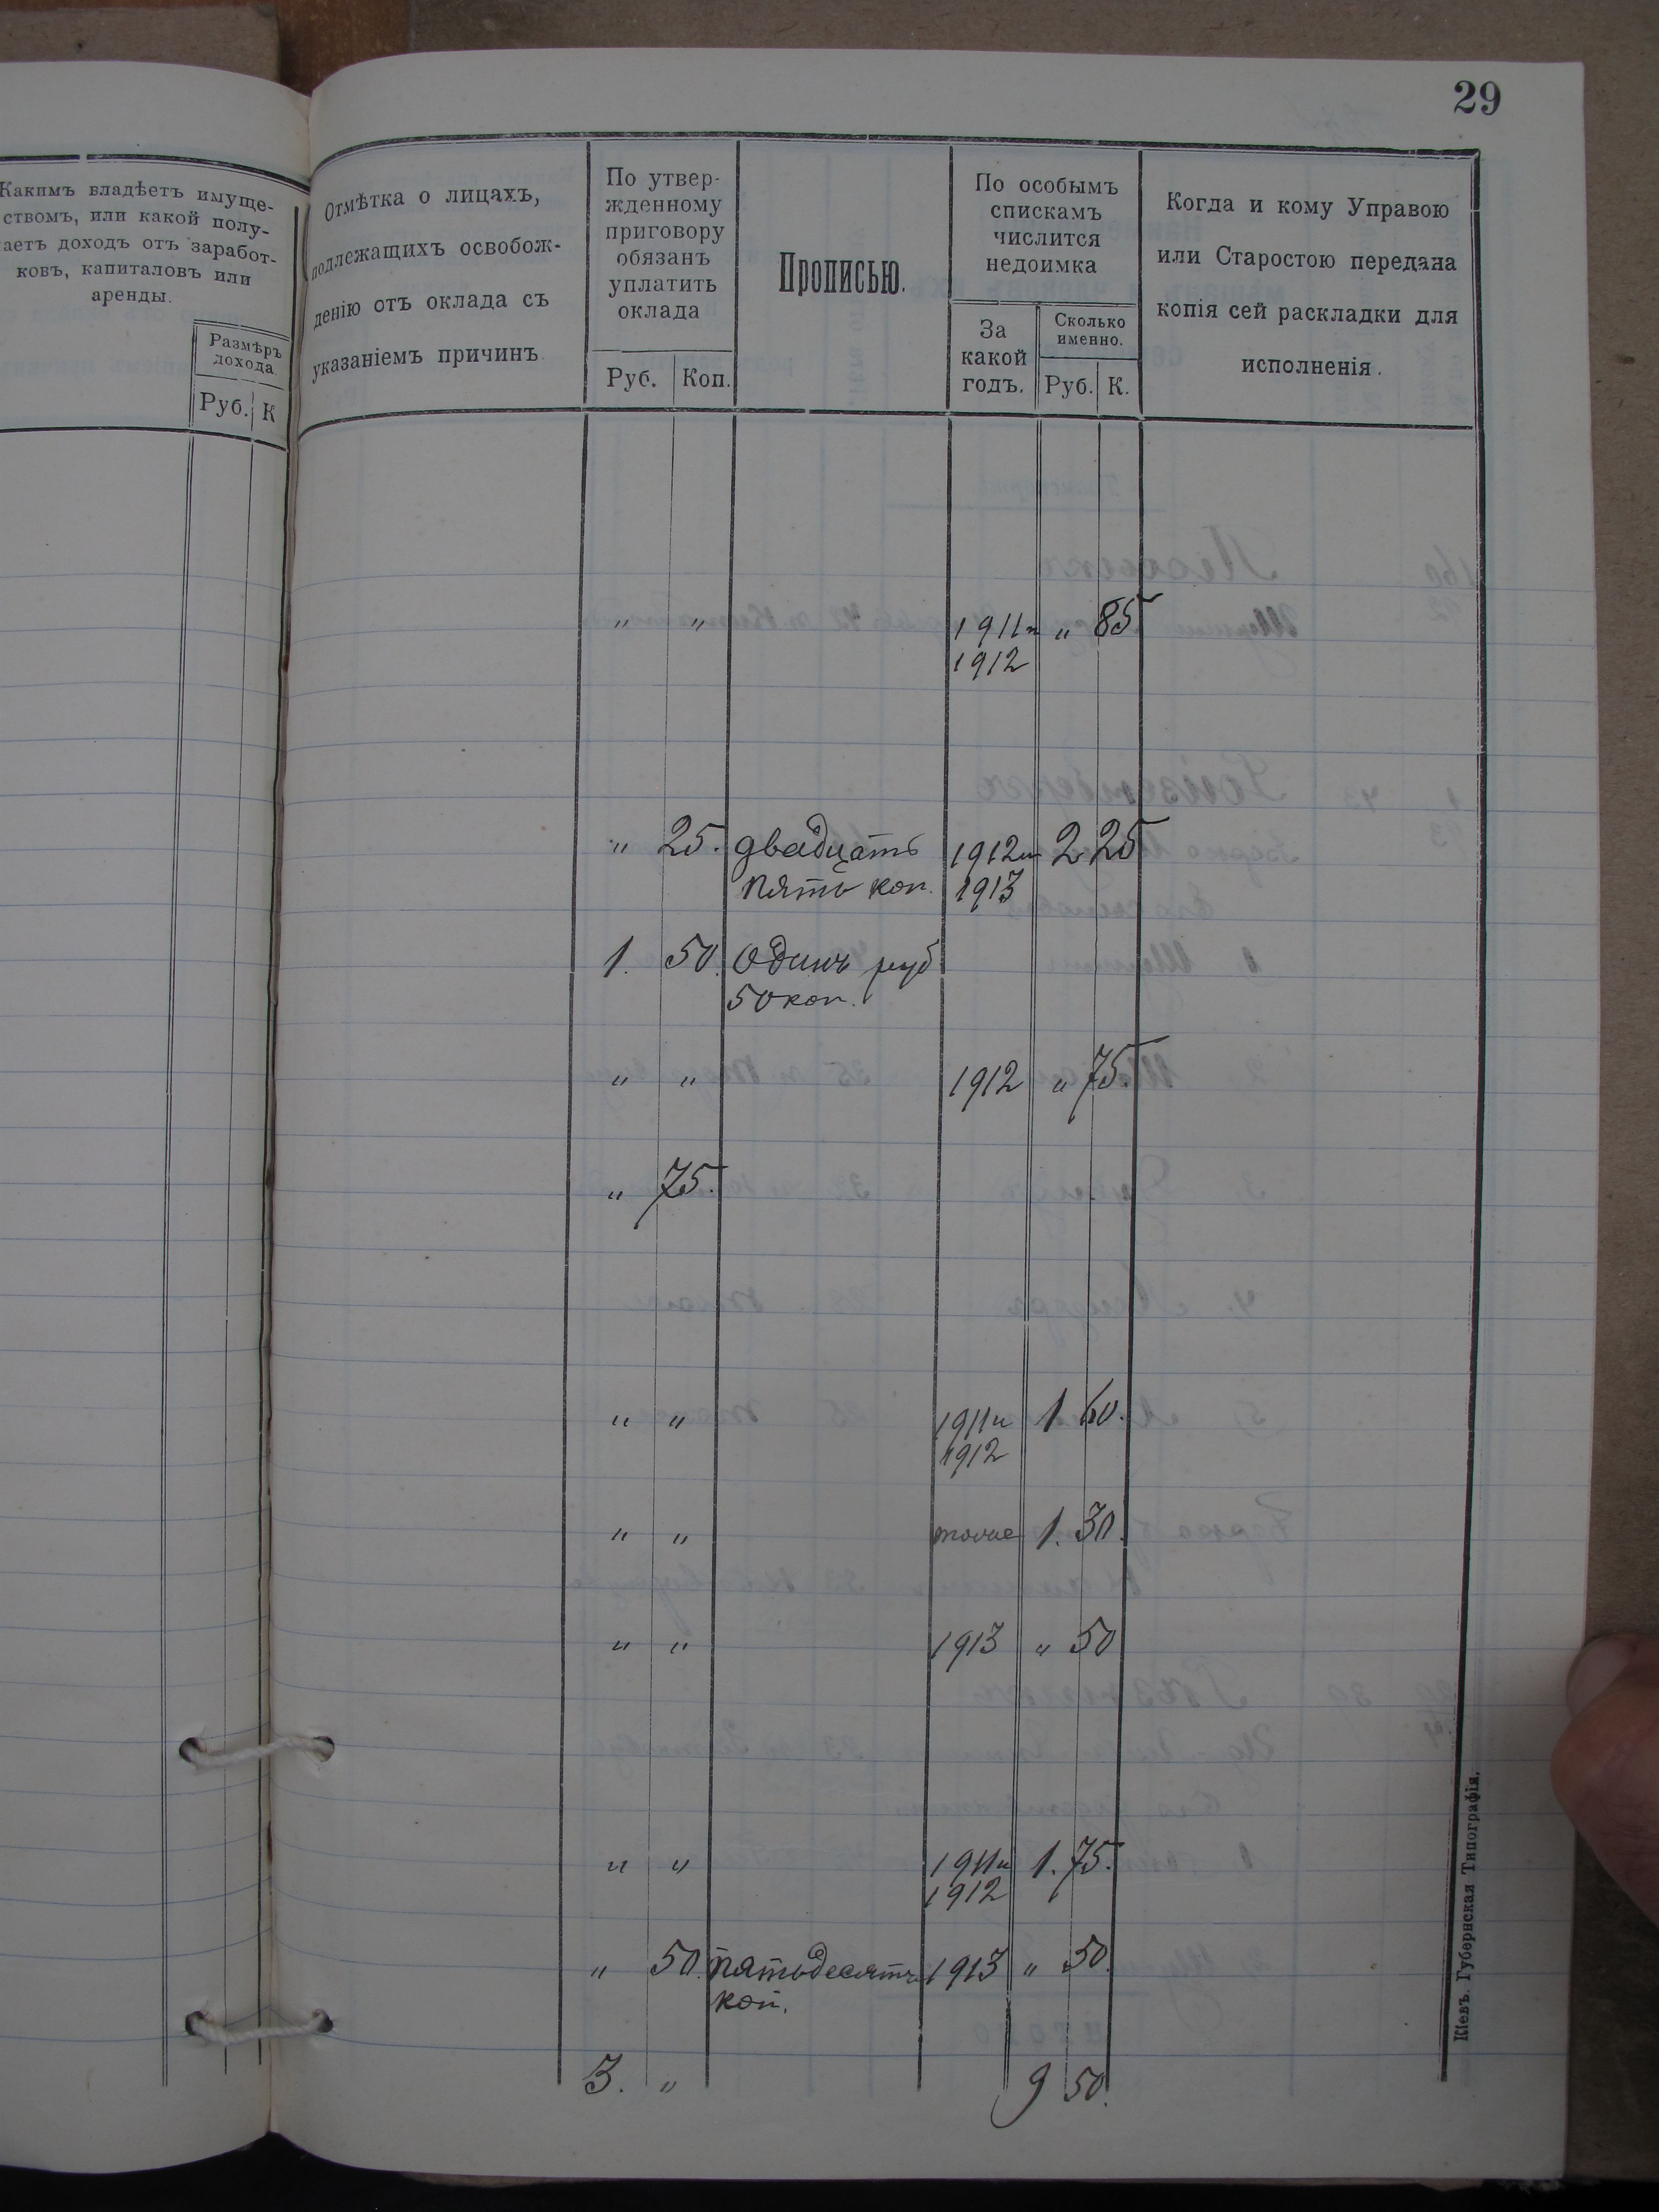 29
Какимъ владѣетъ имуще-
ствомъ, или какой полу-
чаетъ доходъ отъ заработ-
ковъ, капиталовъ или
аренды.
Размѣръ
дохода.
Руб. К
Отмѣтка о лицахъ,
подлежащихъ освобож-
денію отъ оклада съ
указаніемъ причинъ
По утвер-
жденному
приговору
обязанъ
уплатить
оклада
Руб. Коп.
Прописью.
По особымъ
спискамъ
числится
недоимка
За
какой
годъ.
Сколько
именно.
Руб. К.
Когда и кому Управою
или Старостою передана
копія сей раскладки для
исполненія.
" " 1911и " 85
1912
" 25. двадцать 1912и 2 25
пять коп. 1913
1. 50. Одинъ руб
50 коп.
" " 1912 " 75.
" 75.
" " 1911и 1 60.
1912
" " тоже 1. 30.
" " 1913 " 50
" " 1911и 1. 75.
1912
" 50. пятьдесятъ 1913 " 50.
коп.
3. " 9 50.
Кіевъ. Губернская Типографія.